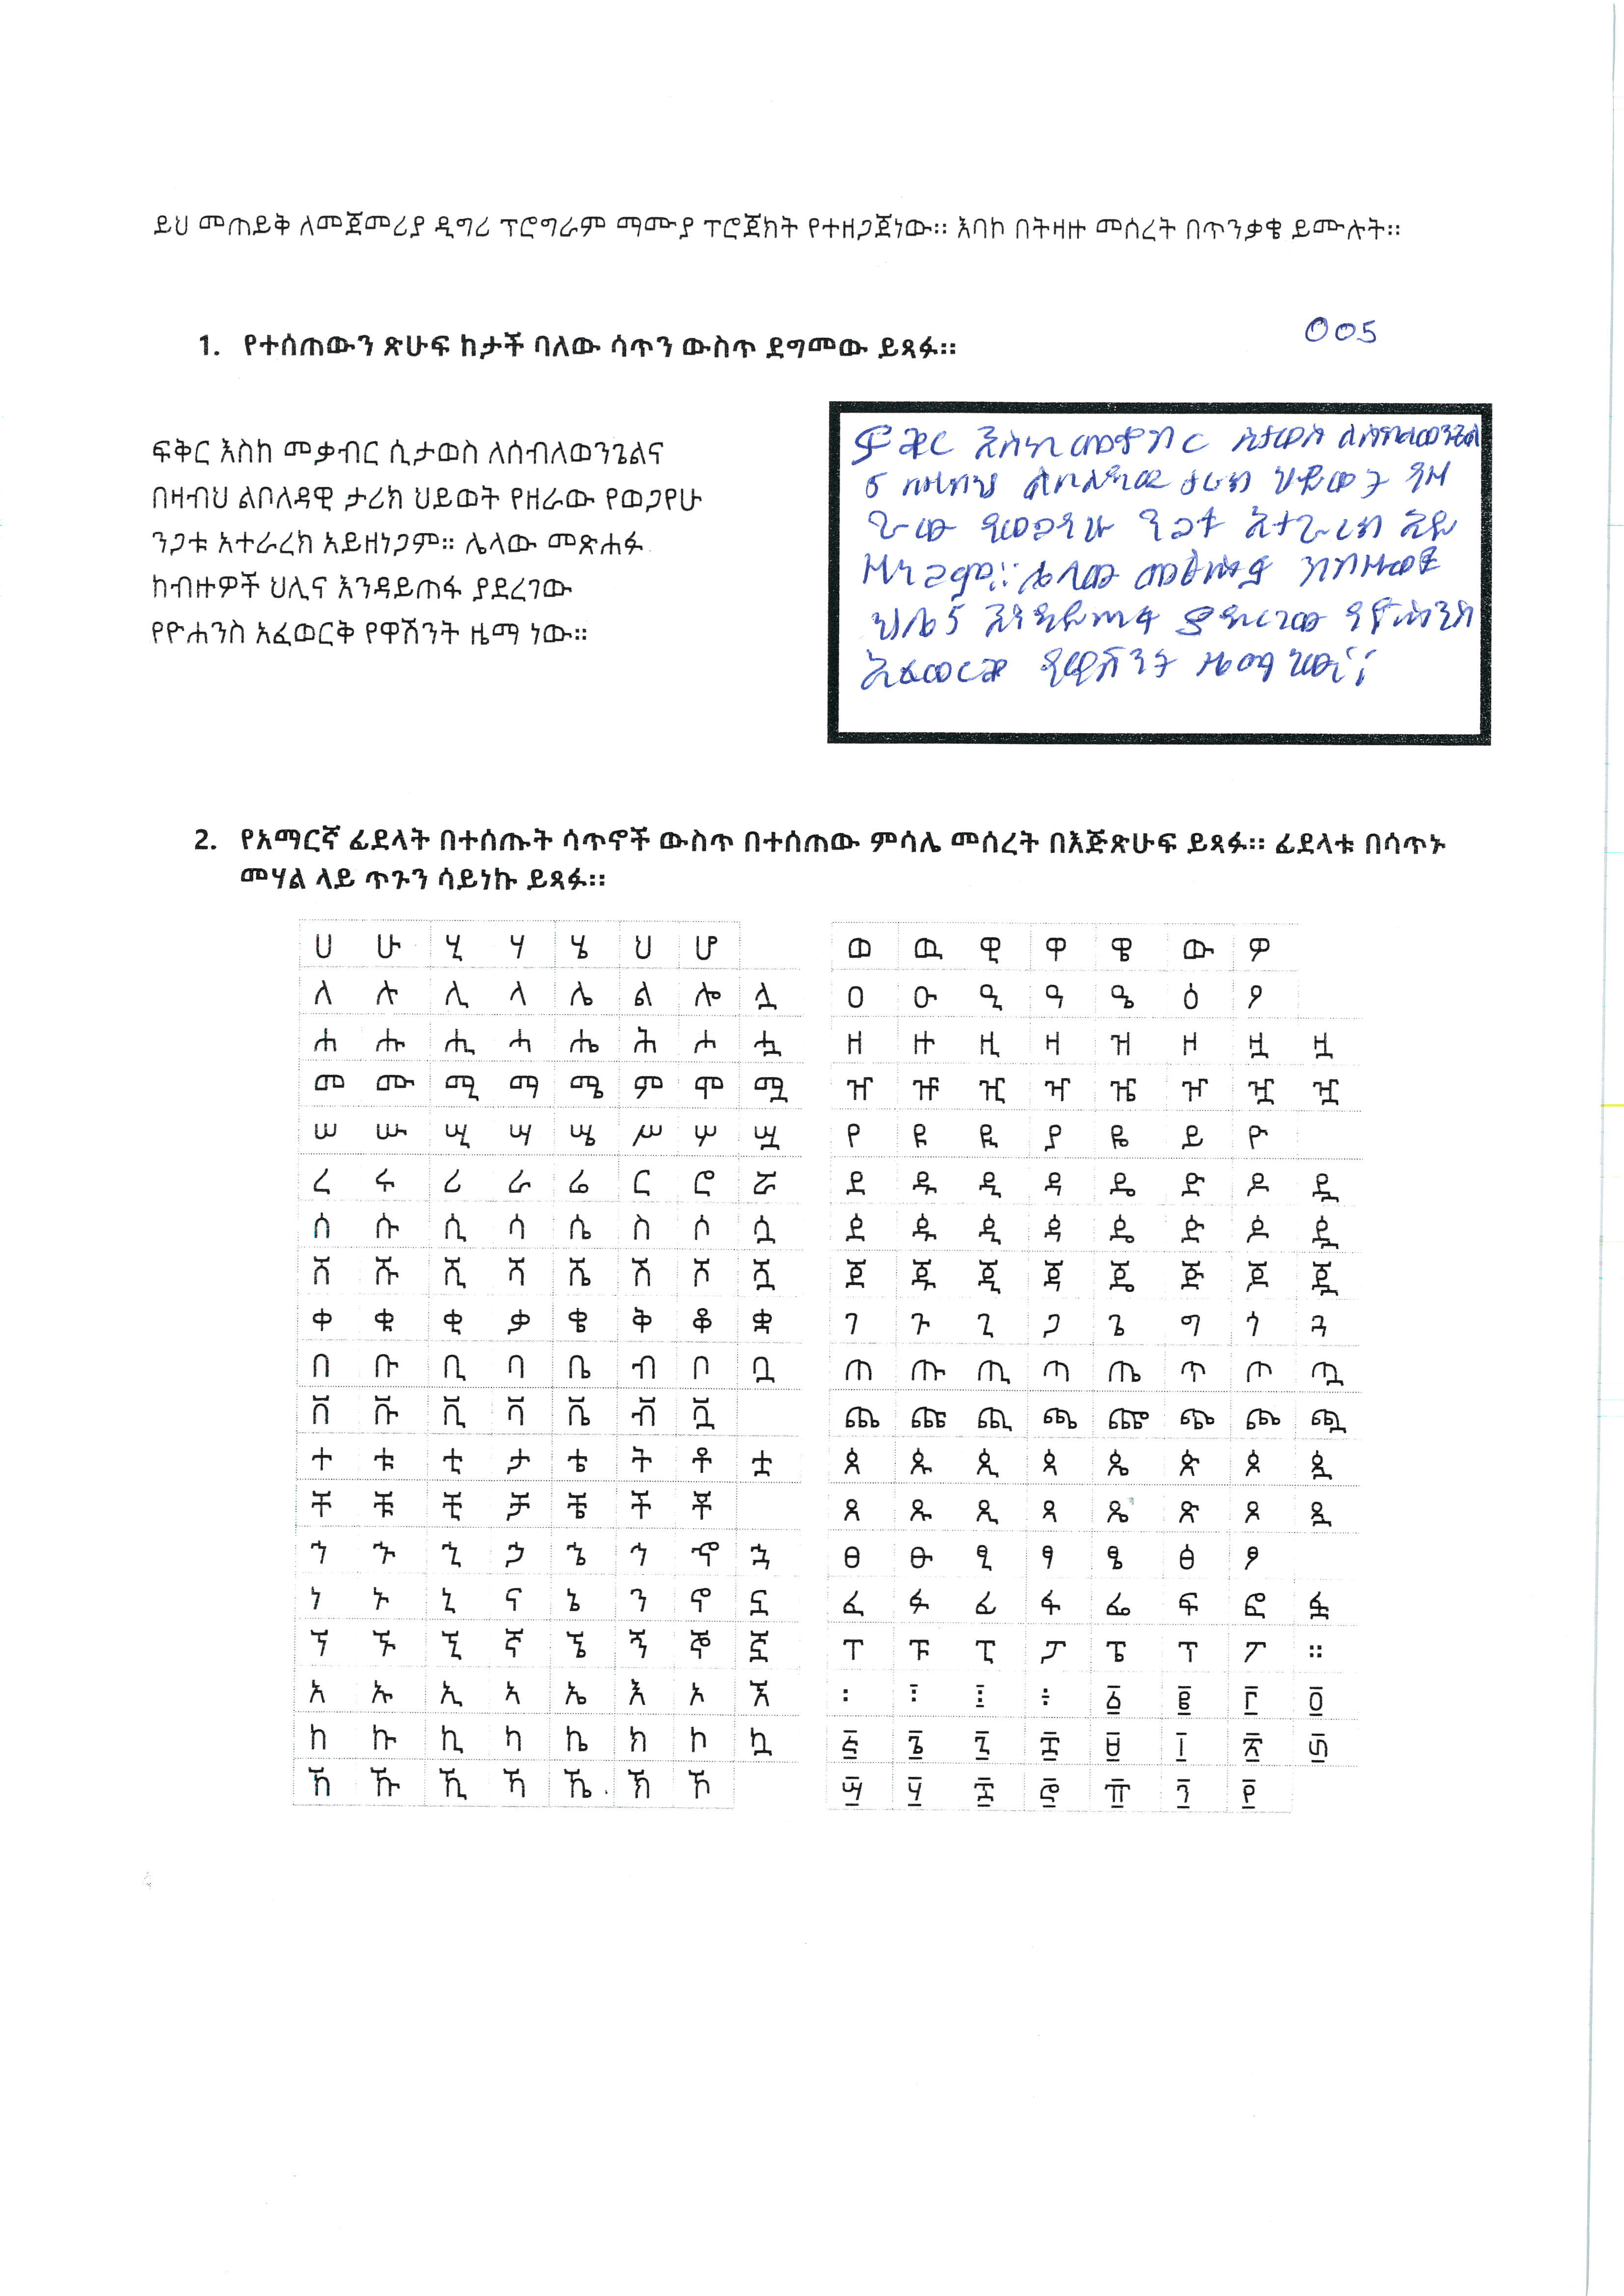 ይህ መጠይቅ ለመጀመሪያ ዲግሪ ፕሮግራም ማሙያ ፕሮጀክት የተዘጋጀነው። እባኮ በትዛዙ መሰረት በጥንቃቄ ይሙሉት።
1. የተሰጠውን ጽሁፍ ከታች ባለው ሳጥን ውስጥ ደግመው ይጻፉ።
005
ፍቅር እስከ መቃብር ሲታወስ ለሰብለወንጌልና
በዛብህ ልቦለዳዊ ታሪክ ህይወት የዘራው የወጋየሁ
ንጋቱ አተራረክ አይዘነጋም። ሌላው መጽሐፉ
ከብዙዎች ህሊና እንዳይጠፋ ያደረገው
የዮሐንስ አፈወርቅ የዋሽንት ዜማ ነው።
ፍቅር እስከ መቃብር ሲታወስ ለሰብለወንጌል
ና በዛብህ ልቦለዳዊ ታሪክ ህይወት የዘ
ራው የወጋየሁ ንጋቱ አተራረክ አይ
ዘነጋም። ሌላው መፅሐፉ ከብዙወች
ህሌና እንዳይጠፋ ያደረገው የዮሐንስ
አፈወርቅ የዋሽንት ዜማ ነው።
2. የአማርኛ ፊደላት በተሰጡት ሳጥኖች ውስጥ በተሰጠው ምሳሌ መሰረት በእጅጽሁፍ ይጻፉ። ፊደላቱ በሳጥኑ
መሃል ላይ ጥጉን ሳይነኩ ይጻፉ።
ሀ ሁ ሂ ሃ ሄ ህ ሆ
ለ ሉ ሊ ላ ሌ ል ሎ ሏ
ሐ ሑ ሒ ሓ ሔ ሕ ሖ ሗ
መ ሙ ሚ ማ ሜ ም ሞ ሟ
ሠ ሡ ሢ ሣ ሤ ሥ ሦ ሧ
ረ ሩ ሪ ራ ሬ ር ሮ ሯ
ሰ ሱ ሲ ሳ ሴ ስ ሶ ሷ
ሸ ሹ ሺ ሻ ሼ ሽ ሾ ሿ
ቀ ቁ ቂ ቃ ቄ ቅ ቆ ቋ
በ ቡ ቢ ባ ቤ ብ ቦ ቧ
ቨ ቩ ቪ ቫ ቬ ቭ ቯ
ተ ቱ ቲ ታ ቴ ት ቶ ቷ
ቸ ቹ ቺ ቻ ቼ ች ቾ
ኀ ኁ ኂ ኃ ኄ ኅ ኆ ኋ
ነ ኑ ኒ ና ኔ ን ኖ ኗ
ኘ ኙ ኚ ኛ ኜ ኝ ኞ ኟ
አ ኡ ኢ ኣ ኤ እ ኦ ኧ
ከ ኩ ኪ ካ ኬ ክ ኮ ኳ
ኸ ኹ ኺ ኻ ኼ ኽ ኾ
ወ ዉ ዊ ዋ ዌ ው ዎ
ዐ ዑ ዒ ዓ ዔ ዕ ዖ
ዘ ዙ ዚ ዛ ዝ ዞ ዟ ዟ
ዠ ዡ ዢ ዣ ዤ ዦ ዧ ዧ
የ ዩ ዪ ያ ዬ ይ ዮ
ደ ዱ ዲ ዳ ዴ ድ ዶ ዷ
ዸ ዹ ዺ ዻ ዼ ዽ ዾ ዿ
ጀ ጁ ጂ ጃ ጄ ጅ ጆ ጇ
ገ ጉ ጊ ጋ ጌ ግ ጎ ጓ
ጠ ጡ ጢ ጣ ጤ ጥ ጦ ጧ
ጨ ጩ ጪ ጫ ጬ ጭ ጮ ጯ
ጰ ጱ ጲ ጳ ጴ ጵ ጶ ጷ
ጸ ጹ ጺ ጻ ጼ ጽ ጾ ጿ
ፀ ፁ ፂ ፃ ፄ ፅ ፆ
ፈ ፉ ፊ ፋ ፌ ፍ ፎ ፏ
ፐ ፑ ፒ ፓ ፔ ፕ ፖ ።
፡ ፤ ፩ ፪ ፫ ፬
፭ ፮ ፯ ፰ ፱ ፲ ፳ ፴
፵ ፶ ፷ ፸ ፹ ፺ ፻